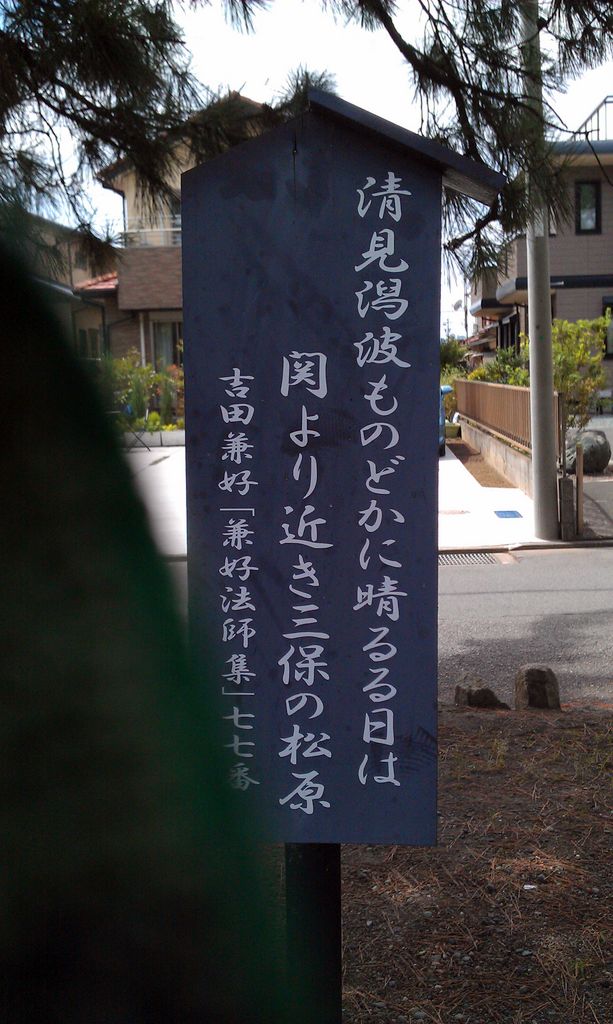 清見潟波ものどかに晴るる日は
関より近き三保の松原
吉田兼好「兼好法師集」七七番